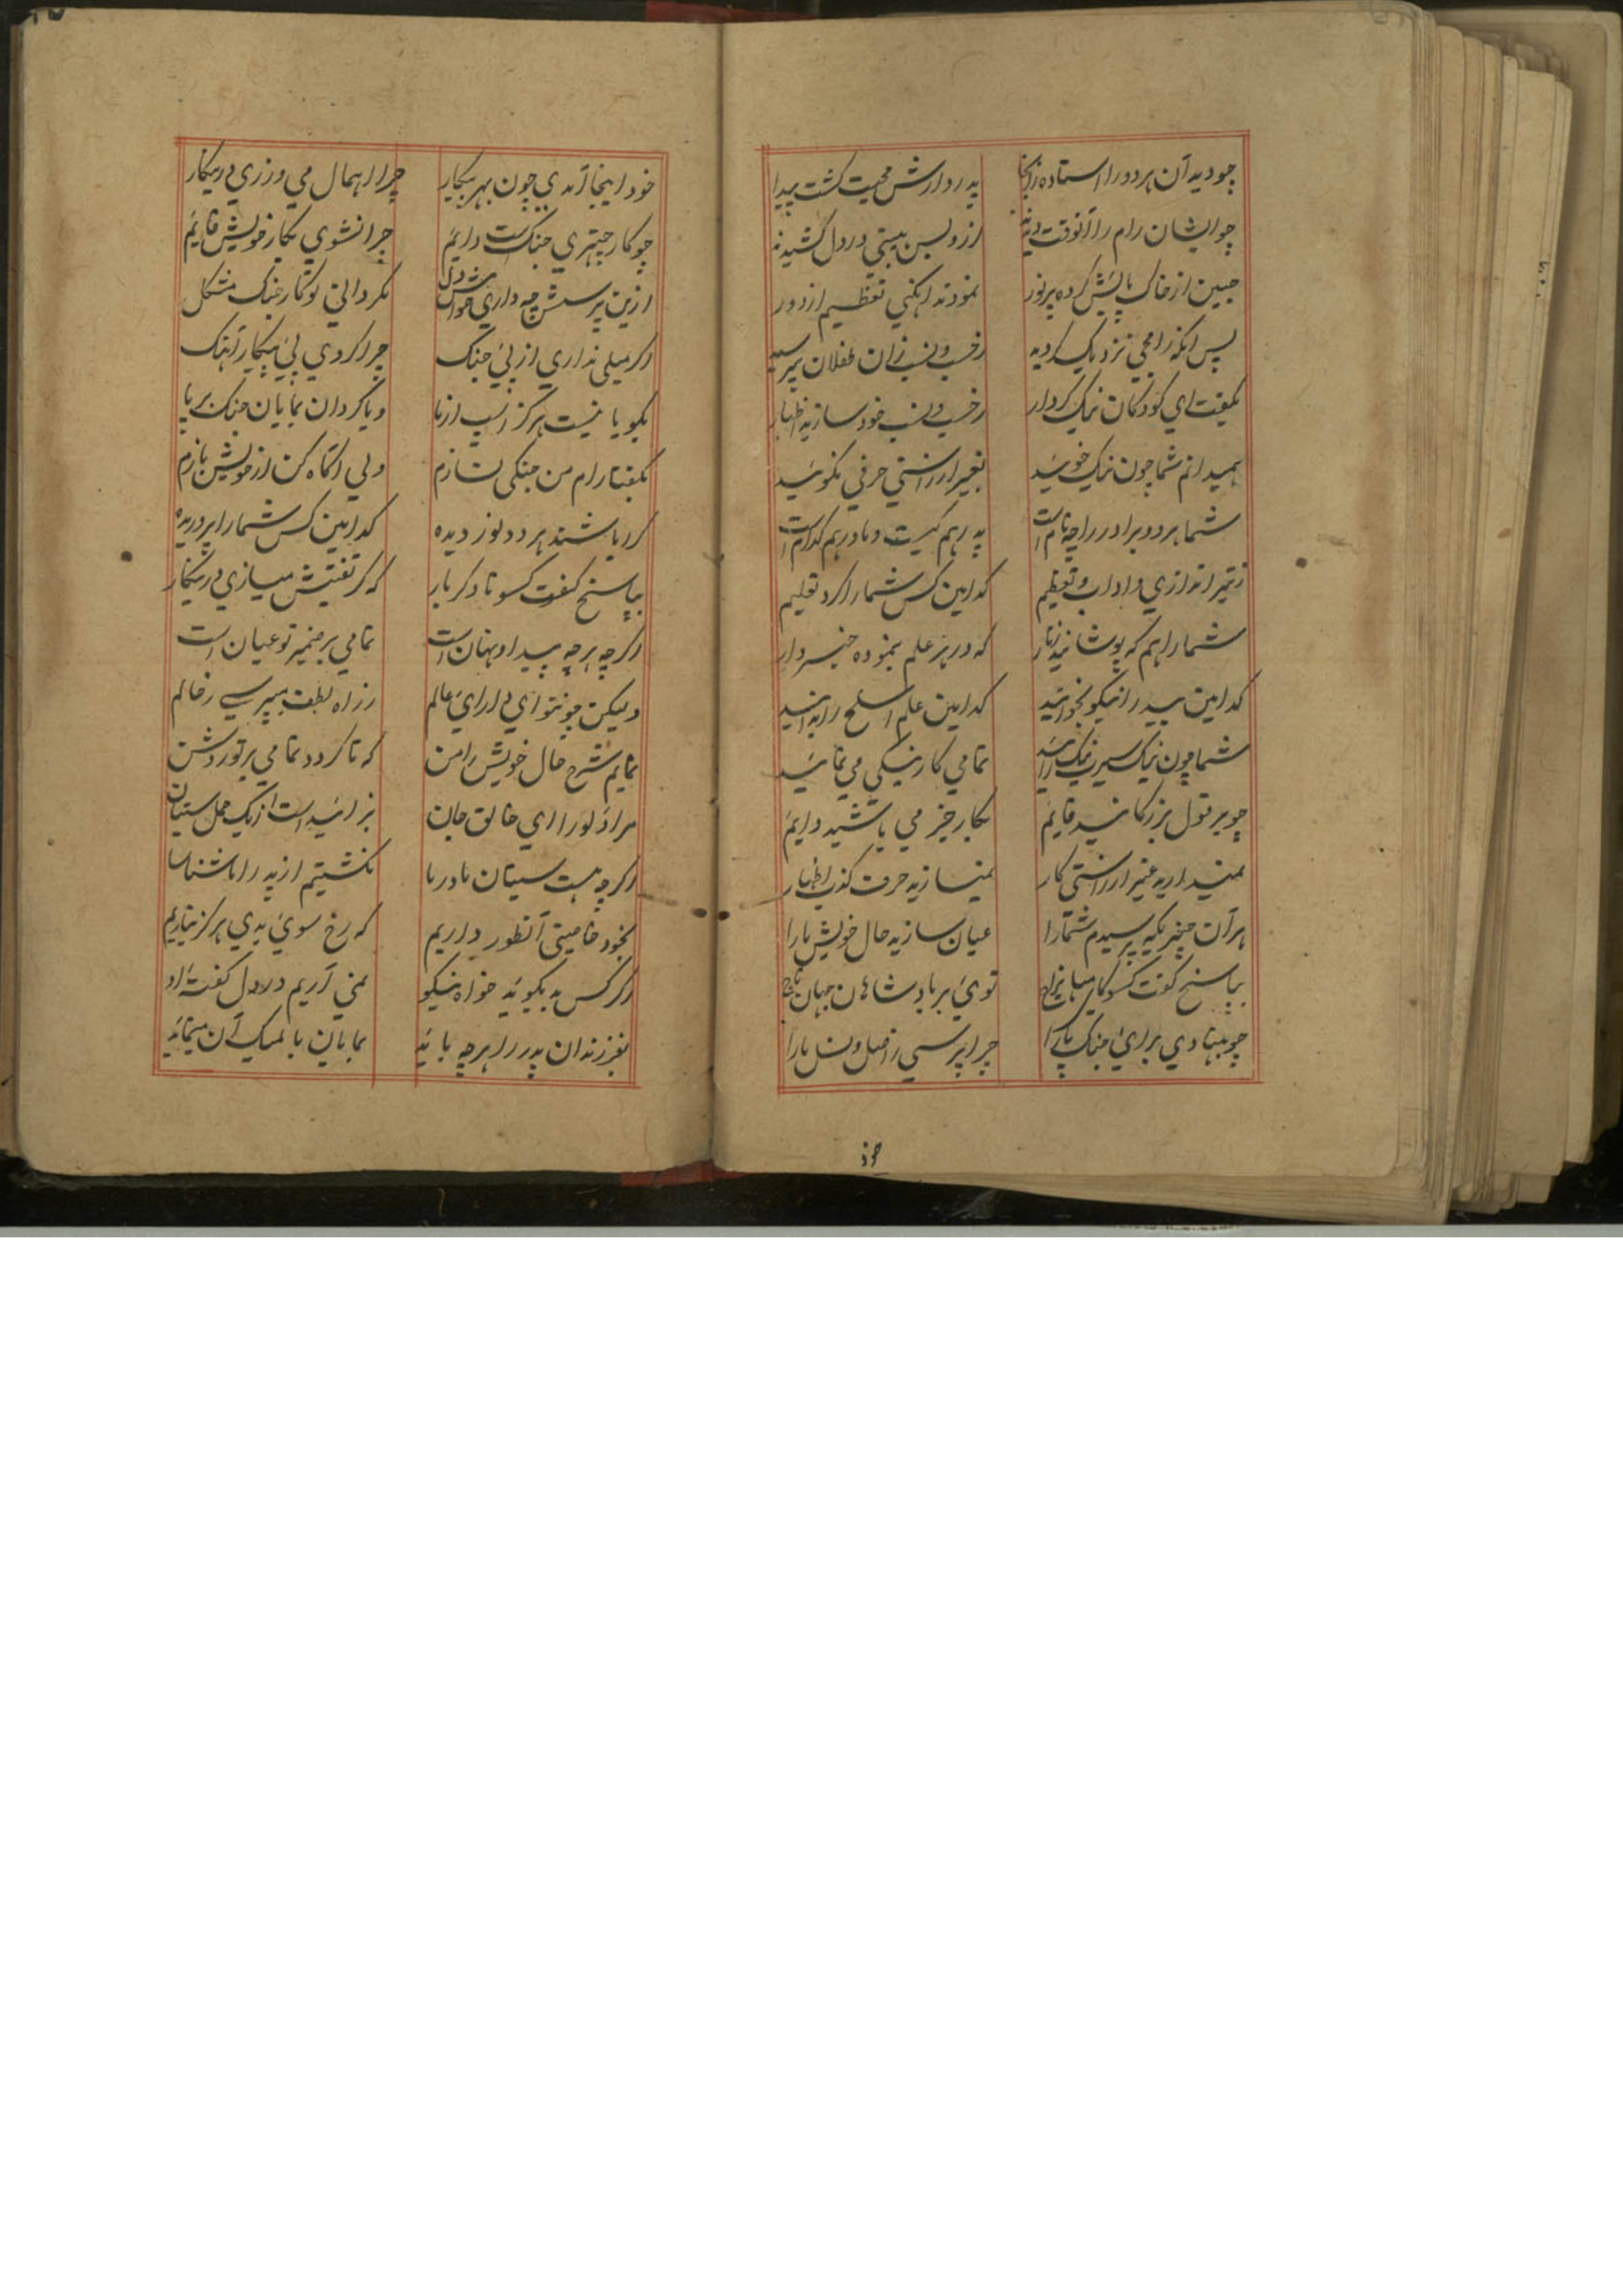 چو دید آن هر دو را استاده زانجا پدروارش محبت گشت پیدا
چو ایشان رام را آنوقت دیدند ازو بس هیبتی در دل کشیدند
جبین از خاک پایش کرده پر نور نمودند آنکهی تعظیم از دور
پس آنکه رامجی نزدیک گردید ز حسب و نسب زان طفلان بپرسید
بگفت ای کودکان نیک کردار ز حسب و نسب خود سازید اظهار
همیدانم شما چون نیک خوئید بغیر از راستی حرفی نگوئید
شما هر دو برادر را چه نام است پدر هم کیست و مادر هم کدام است
ز تیراندازی و آداب و تعظیم کدامین کس شما را کرد تعلیم
شما را هم که پوشانید زنار که در هر علم بنموده خبردار
کدامین بید را نیکو بخوانید کدامین علم اسلح را بدانید
شما چون نیک سیرت نیک رائید تمامی کار نیکی می نمائید
چو بر قول بزرگانید قایم بکار خیر می باشید دایم
نمیدارید غیر از راستی کار نمیسازید حرف کذب اظهار
هر آن چیزیکه پرسیدم شما را عیان سازید حال خویش ما را
بپاسخ گفت کسو کای توئی بر بادشاهان جهان تاج
چو بنهادی برای جنک پا را چرا پرسی ز اصل و نسل ما را
خود اینجا آمدی چون بهر پیکار چرا اهمال می ورزی درینکار
چو کار چهتری جنک است دایم چرا نشوی بکار خویش قایم
ازین پرسش چه داری خواهش دل مگر دانی تو کار جنک مشکل
اگر میلی نداری از پئ جنک چرا کردی پئ پیکار آهنک
بگو یا نیست هرگز اسپ از ما و یا گردان بمایان جنک برپا
بگفتا رام من جنگی نسازم ولی آگاه کن از خویش بازم
کرا باشند هر دو نور دیده کدامین کس شما را پروریده
بپاسخ گفت کسو تا دگر بار که گر تفتیش میسازی درینکار
اگرچه هرچه پیدا و نهان است تمامی بر ضمیر تو عیان است
ولیکن چون تو ای دارای عالم ز راه لطف میپرسی ز حالم
نمایم شرح حال خویش را من که تا گردد تمامی بر تو روشن
مرا و لو را ای خالق جان بزائید است از یک حمل سیتان
اگرچه هست سیتان مادر ما نگشتیم از پدر را ما شناسا
بخود خاصیتی آنطور داریم که رخ سوی بدی هرگز نیاریم
اگر کس بد بگوید خواه نیکو نمی آریم در دل گفته او
بفرزندان پدر را هرچه باید بمایان بالمیک آن مینماید